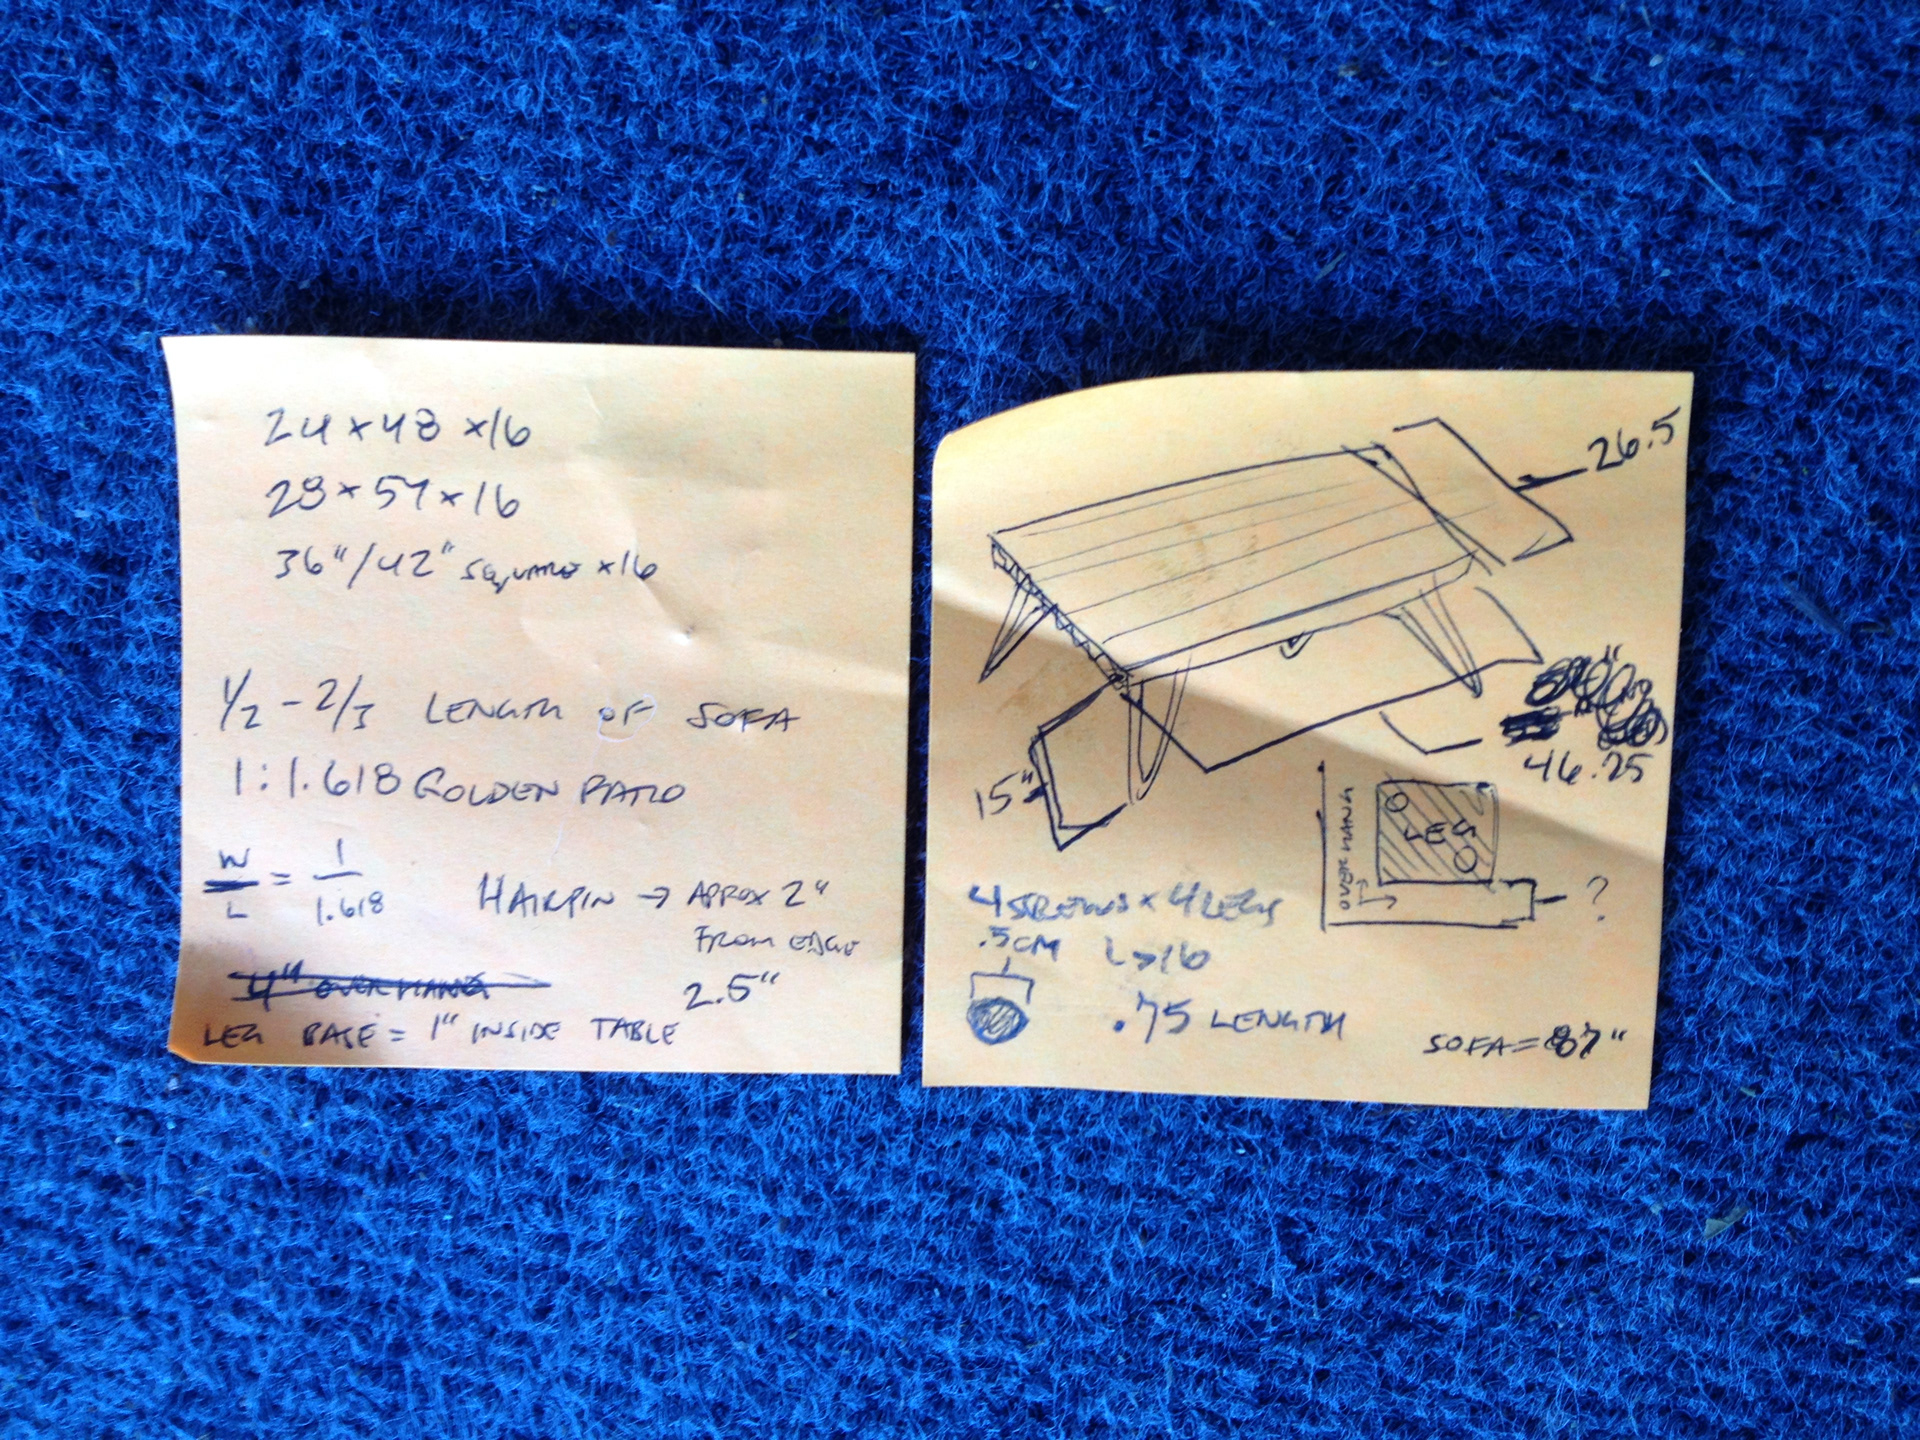 24 × 48 × 16
28 × 54 × 16
36"/42" SQUARE × 16
1/2 - 2/3 LENGTH OF SOFA
1:1.618 GOLDEN RATIO
W/L = 1/1.618
HAIRPIN → APROX 2"
FROM EDGE
2.5"
4" OVERHANG
LEG BASE = 1" INSIDE TABLE
26.5
46.25
15"
OVERHANG
LEG
?
4 SCREWS × 4 LEGS
.5CM
↳ 16
.75 LENGTH
SOFA = 87"